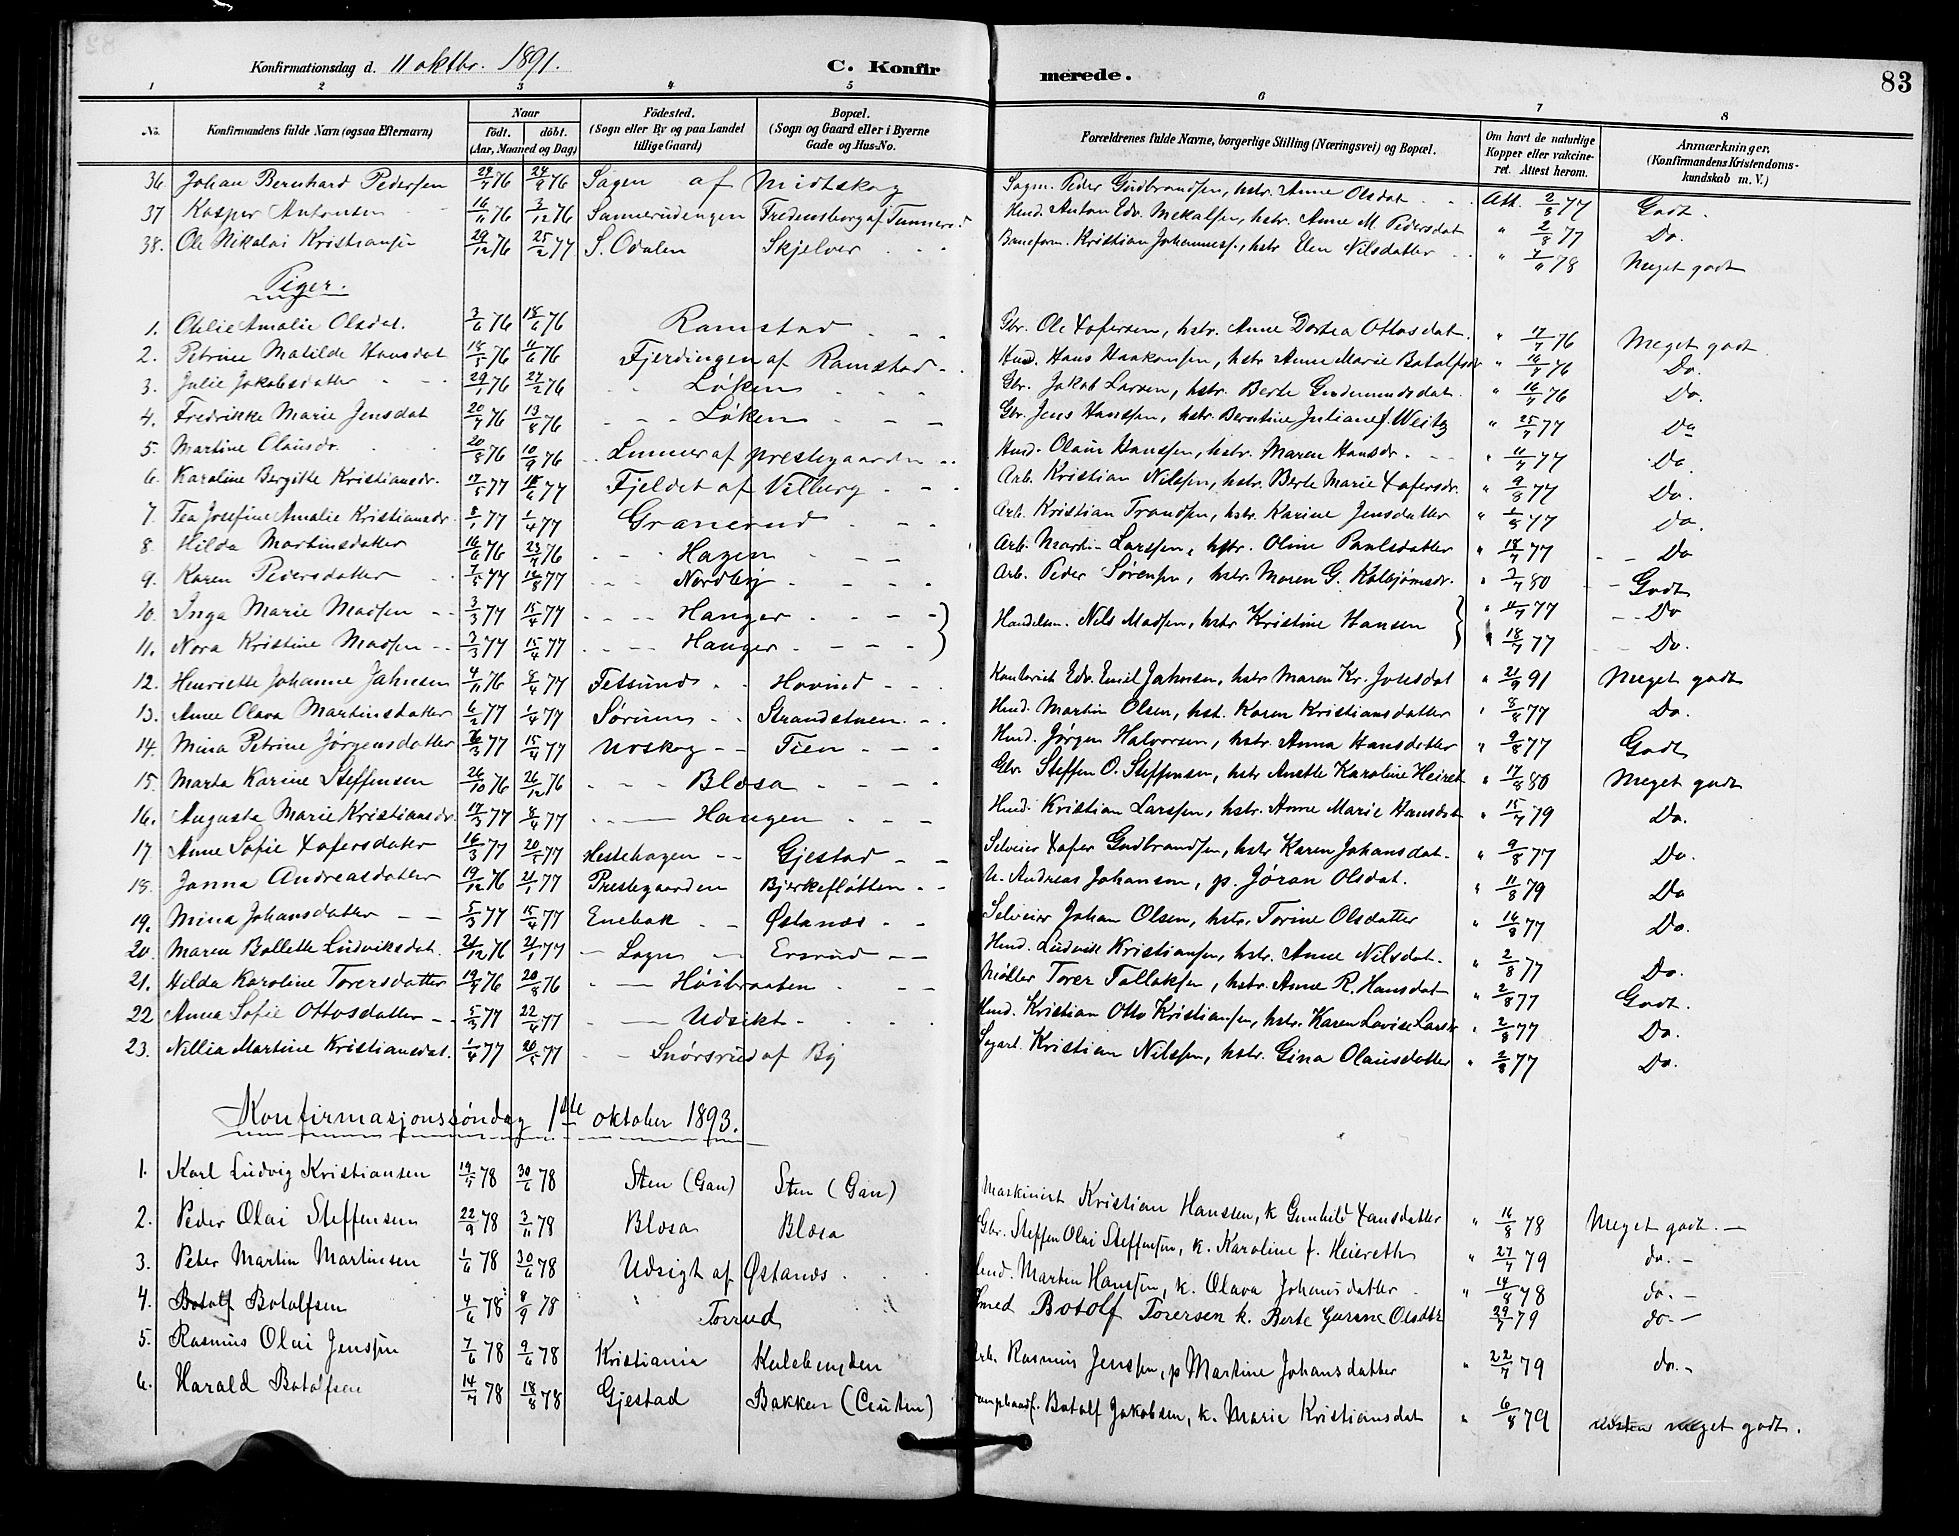 Konfirmationsdag d. 11 oktbr. 1891. C. Konfirmerede. 83
1 2 3 4 5 6 7 8
No. Konfirmandens fulde Navn (ogsaa Efternavn) Naar født. døbt. (Aar, Maaned og Dag) Fødested. (Sogn eller By og paa Landet tillige Gaard) Bopæl. (Sogn og Gaard eller i Byerne Gade og Hus-No. Forældrenes fulde Navne, borgerlige Stilling (Næringsvei) og Bopæl. Om havt de naturlige Kopper eller vakcineret. Attest herom. Anmærkninger. (Konfirmandens Kristendomskundskab m. V.)
36 Johan Bernhard Pedersen 29/7 76 24/9 76 Sagen af Midtskog Sagm. Peder Gudbrandsen, hstr. Anne Olsdat Att. 2/8 77 Godt.
37 Kasper Antonsen 16/11 76 3/12 76 Sannerudengen Fredensborg af Tunnerd. Hmd. Anton Edv. Mekalsen, hstr. Anne M. Pedersdat " 2/8 77 Do.
38. Ole Nikolai Kristiansen 29/12 76 25/2 77 S. Odalen Skjelver Baneform. Kristian Johanness., hstr Elen Nilsdatter " 78 Meget godt
Piger.
1. Ohlie Amalie Olsdat. 3/6 76 18/6 76 Ramstad Gbr. Ole Xofersen, hstr. Anne Dortea Ottosdat. " 17/7 76 Meget godt
2. Petrine Matilde Hansdat 18/5 76 11/6 76 Fjerdingen af Ramstad Hmd. Hans Haakonsen, hstr Anne Marie Botolfsdr " 76 Do.
3. Julie Jakobsdatter 29/1 76 27/2 76 Løken Gbr. Jakob Larsen, hstr. Berte Gudmundsdat. " 76 Do.
4. Fredrikke Marie Jensdat 20/7 76 13/8 76 Løken Gbr. Jens Hanssen, hstr. Berntine Juliane f. Weitz " 25/7 77 Do
5. Martine Olausdr. 20/8 76 10/9 76 Lunner af prestegaarden Hmd. Olaus Hanssen, hstr. Maren Hansdr. " 11/7 77 Do
6. Karoline Bergitte Kristiansdr. 17/5 77 18/6 77 Fjeldet af Vilberg Arb. Kristian Nilssen, hstr. Berte Marie Xofersdr. " 9/8 77 Do.
7. Tea Josefine Amalie Kristiansdr. 8/1 77 1/4 77 Granerud Arb. Kristian Trondsen, hstr. Karine Jensdatter " 77 Do.
8. Hilda Martinsdatter 16/6 76 23/7 76 Hagen Arb. Martin Larssen, hstr. Oline Paulsdatter " 18/7 77 Do
9. Karen Pedersdatter 7/5 77 12/8 77 Nordby Arb. Peder Sørensen, hstr. Maren G. Kolbjørnsdr. " 80 Godt
10. Inga Marie Madsen 3/3 77 15/4 77 Hanger Handelsm. Nils Madsen, hstr Kristine Hansen " 11/7 77 Do
11. Nora Kristine Madsen 3/3 77 15/4 77 Hanger " 18/7 77 Do.
12. Henriette Johanne Jahnsen 4/11 76 8/4 77 Fetsund Hovind Kontorist Edv. Emil Jahnsen, hstr Maren Kr. Jonsdat " 21/9 91 Meget godt
13. Anne Olava Martinsdatter 6/2 77 1/4 77 Sørum Strandstuen Hmd. Martin Olsen, hst. Karen Kristiansdatter " 8/8 77 Do.
14. Mina Petrine Jørgensdatter 77 15/4 77 Urskog Tien Hmd. Jørgen Halvorsen, hstr. Anna Hansdatter " 9/8 77 Godt
15. Marta Karine Steffensen 26/10 76 26/12 76 Blæsa Gbr. Steffen O. Steffensen, hstr Anette Karoline Heiret " 17/8 80 Meget godt
16. Augusta Marie Kristiansdr. 17/3 77 8/4 77 Haugen Hmd. Kristian Larssen, hstr. Anne Marie Hansdat " 15/7 79 Do.
17 Anne Sofie Xofersdatter 16/3 77 20/5 77 Hestehagen Gjestad Selveier Xofer Gudbrandsen, hstr Karen Johansdat. " 9/8 77 Do.
18. Janna Andreasdatter 19/12 76 21/1 77 Prestegaarden Bjerkefløtten U. Andreas Johansen, p. Jøran Olsdat. " 11/8 79 Do
19. Mina Johansdatter 5/3 77 15/4 77 Enebak Østanæs Selveier Johan Olsen, hstr. Torine Olsdatter " 16/8 77 Do.
20. Maren Bollette Ludviksdat. 21/12 76 21/1 77 Sogn Ersrud Hmd. Ludvik Kristiansen, hstr. Anne Nilsdat. " 2/8 77 Do.
21. Hilda Karoline Torersdatter 19/7 76 20/8 76 Høibraaten Møller Torer Tollaksen, hstr. Anne R. Hansdat " 2/8 77 Godt.
22 Anna Sofie Ottosdatter 5/3 77 22/4 77 Udsikt Hmd. Kristian Otto Kristiansen, hstr. Karen Lovise Larsd. " 2/8 77 Do.
23. Nillia Martine Kristiansdat. 1/4 77 20/5 77 Snørsrud af By Sagarb. Kristian Nilssen, hstr. Gina Olausdatter " 2/8 77 Do.
Konfirmasjonssøndag 1ste oktober 1893.
1. Karl Ludvig Kristiansen 19/5 78 30/6 78 Sten (Gan) Sten (Gan) Maskinist Kristian Hanssen, k Gunhild Hansdatter " 16/8 78 Meget godt.
2. Peder Olai Steffensen 22/9 78 3/11 78 Blæsa Blæsa Gbr. Steffen Olai Steffensen, k. Karoline f. Heiereth " 27/7 79 do.
3. Peter Martin Martinsen 1/6 78 30/6 78 Udsigt af Østanæs Hmd. Marten Hanssen, k. Olava Johansdatter " 14/8 78 do.
4. Botolf Botolfsen 4/6 78 8/9 78 " Torrud Smed Botolf Torersen k. Berte Gurine Olsdttr 29/7 79 do.
5. Rasmus Olai Jenssen 7/6 78 9/6 78 Kristiania Kulebunden Arb. Rasmus Jenssen, p Martine Johansdatter " 22/7 79 do.
6. Harald Botolfsen 14/7 78 18/8 78 Gjestad Bakken Botolf Jakobsen, k. Marie Kristiansdat " 6/8 79 næsten meget godt.